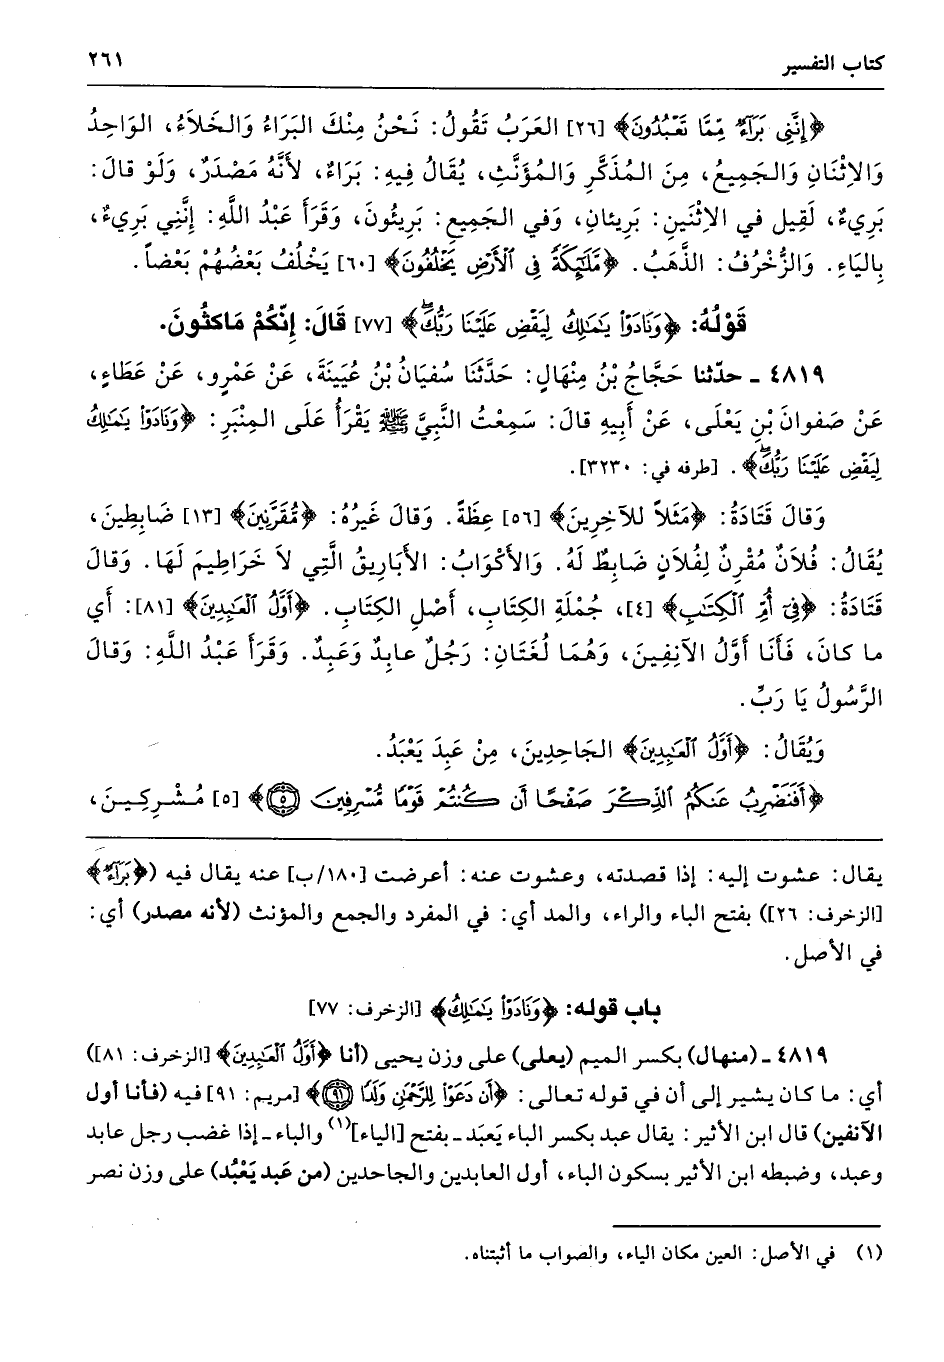 كتاب التفسير ٢٦١
﴿إِنَّنِي بَرَآءٌ مِّمَّا تَعْبُدُونَ﴾ [٢٦] العَرَبُ تَقُولُ: نَحْنُ مِنْكَ البَرَاءُ وَالخَلاَءُ، الوَاحِدُ
وَالاِثْنَانِ وَالجَمِيعُ، مِنَ المُذَكَّرِ وَالمُؤَنَّثِ، يُقَالُ فِيهِ: بَرَاءٌ، لأَنَّهُ مَصْدَرٌ، وَلَوْ قالَ:
بَرِيءٌ، لَقِيل في الاِثْنَينِ: بَرِيئانِ، وَفي الجَمِيعِ: بَرِيئُونَ، وَقَرَأَ عَبْدُ اللَّهِ: إِنَّنِي بَرِيءٌ،
بِاليَاءِ. وَالزُّخْرُفُ: الذَّهَبُ. ﴿مَّلَٰٓئِكَةً فِي ٱلْأَرْضِ يَخْلُفُونَ﴾ [٦٠] يَخْلُفُ بَعْضُهُمْ بَعْضاً.
قَوْلُهُ: ﴿وَنَادَوْا۟ يَٰمَٰلِكُ لِيَقْضِ عَلَيْنَا رَبُّكَۖ﴾ [٧٧] قَالَ: إِنَّكُمْ مَاكثُونَ.
٤٨١٩ ـ حدّثنا حَجَّاجُ بْنُ مِنْهَالٍ: حَدَّثَنَا سُفيَانُ بْنُ عُيَينَةَ، عَنْ عَمْرٍو، عَنْ عَطَاءٍ،
عَنْ صَفوانَ بْنِ يَعْلَى، عَنْ أَبِيهِ قالَ: سَمِعْتُ النَّبِيَّ ﷺ يَقْرَأُ عَلَى المِنْبَرِ: ﴿وَنَادَوْا۟ يَٰمَٰلِكُ
لِيَقْضِ عَلَيْنَا رَبُّكَۖ﴾. [طرفه في: ٣٢٣٠].
وَقالَ قَتَادَةُ: ﴿مَثَلاً للآخِرِينَ﴾ [٥٦] عِظَةً. وَقالَ غَيرُهُ: ﴿مُقْرَنِينَ﴾ [١٣] ضَابِطِينَ،
يُقَالُ: فُلاَنٌ مُقْرِنٌ لِفُلاَنٍ ضَابِطٌ لَهُ. وَالأَكْوَابُ: الأَبَارِيقُ الَّتِي لاَ خَرَاطِيمَ لَهَا. وَقالَ
قَتَادَةُ: ﴿فِيٓ أُمِّ ٱلْكِتَٰبِ﴾ [٤]، جُمْلَةِ الكِتَابِ، أَصْلِ الكِتَابِ. ﴿أَوَّلُ ٱلْعَٰبِدِينَ﴾ [٨١]: أَي
ما كانَ، فَأَنَا أَوَّلُ الآنِفِينَ، وَهُمَا لُغَتَانِ: رَجُلٌ عابِدٌ وَعَبِدٌ. وَقَرَأَ عَبْدُ اللَّهِ: وَقالَ
الرَّسُولُ يَا رَبِّ.
وَيُقَالُ: ﴿أَوَّلُ ٱلْعَٰبِدِينَ﴾ الجَاحِدِينَ، مِنْ عَبِدَ يَعْبَدُ.
﴿أَفَنَضْرِبُ عَنكُمُ ٱلذِّكْرَ صَفْحًا أَن كُنتُمْ قَوْمًا مُّسْرِفِينَ ٥﴾ [٥] مُشْرِكِينَ،
يقال: عشوت إليه: إذا قصدته، وعشوت عنه: أعرضت [١٨٠/ب] عنه يقال فيه (﴿بَرَآءٌ﴾
[الزخرف: ٢٦]) بفتح الباء والراء، والمد أي: في المفرد والجمع والمؤنث (لأنه مصدر) أي:
في الأصل.
باب قوله: ﴿وَنَادَوْا۟ يَٰمَٰلِكُ﴾ [الزخرف: ٧٧]
٤٨١٩ ـ (منهال) بكسر الميم (يعلى) على وزن يحيى (أنا ﴿أَوَّلُ ٱلْعَٰبِدِينَ﴾ [الزخرف: ٨١])
أي: ما كان يشير إلى أن في قوله تعالى: ﴿أَن دَعَوْا۟ لِلرَّحْمَٰنِ وَلَدًا ٩١﴾ [مريم: ٩١] فيه (فأنا أول
الآنفين) قال ابن الأثير: يقال عبد بكسر الباء يَعبَد ـ بفتح [الياء](١) والباء ـ إذا غضب رجل عابد
وعبد، وضبطه ابن الأثير بسكون الباء، أول العابدين والجاحدين (من عَبد يَعْبُد) على وزن نصر
(١) في الأصل: العين مكان الياء، والصواب ما أثبتناه.